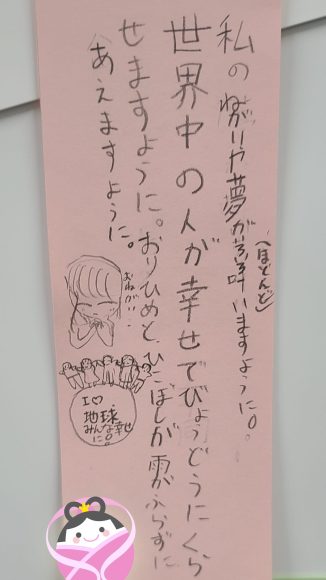 私のねがいや夢が叶いますように。
(ほとんど)
世界中の人が幸せでびょうどうにくら
せますように。おりひめと、ひこぼしが雨がふらずに
あえますように。
おねがい
I♡
地球
みんな幸せ
に。